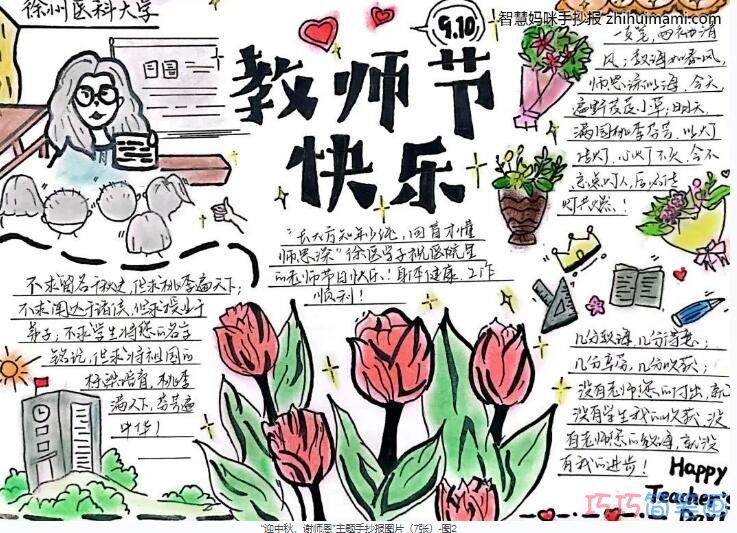 徐州医科大学
智慧妈咪手抄报 zhihuimami.com
9.10
教师节
快乐
一支笔，两袖清
风；教诲如春风，
师恩深似海，今天
遍野茂茂小草；明天，
满园桃李芬芳，以灯
传灯，心灯不灭，今不
忘点灯人，后必传
灯共燃！
"长大方知年少纯，回首才懂
师恩深"徐医学子祝医院里
的老师节日快乐！身体健康，工作
顺利！
不求留名千秋史，但求桃李遍天下；
不求闻达于诸侯，但求授业于
弟子；不求学生将您的名字
铭记，但求将祖国的
栋梁培育，桃李
满天下，芬芳遍
中华！
几分教诲，几分清老；
几分辛劳，几分收获；
没有老师您的付出，就
没有学生我的收获，没
有老师您的教诲，就没
有我的进步！
Happy
Teacher's
Day!
巧巧简笔画
"迎中秋，谢师恩"主题手抄报图片（7张）-图2